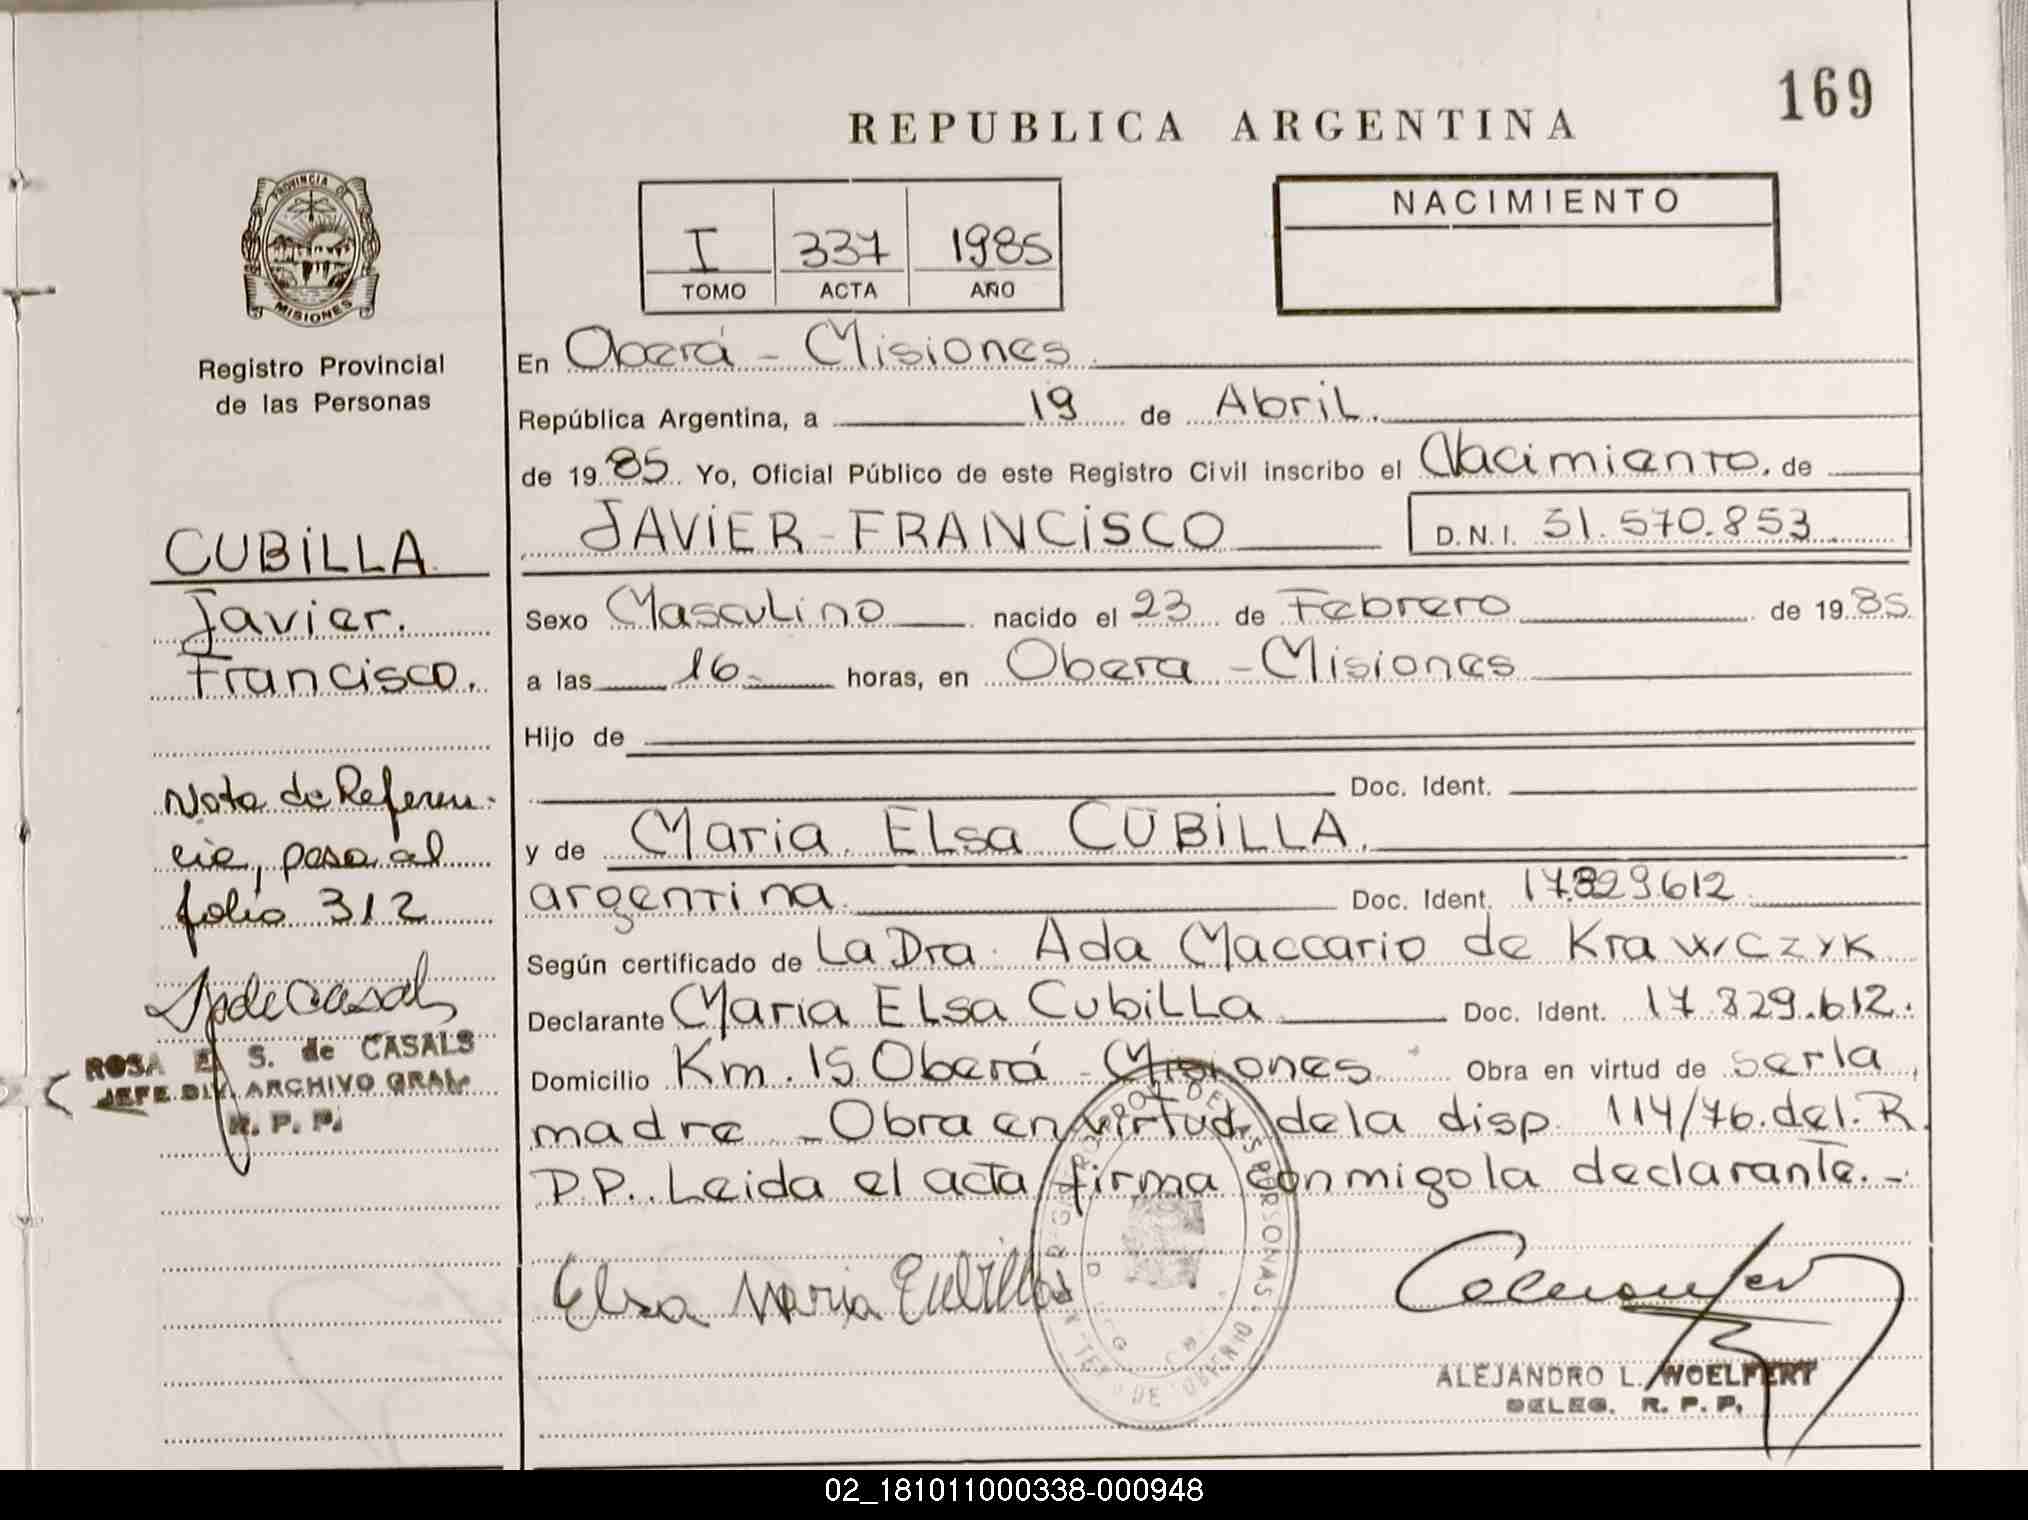 169
REPUBLICA ARGENTINA
PROVINCIA DE
MISIONES
Registro Provincial
de las Personas
I 337 1985
TOMO ACTA AÑO
NACIMIENTO
CUBILLA.
Javier.
Francisco.
Nota de Referen-
cia, pasa al
folio 312
ROSA E. S. de CASALS
JEFE DIV. ARCHIVO GRAL.
R. P. P.
En Oberá - Misiones
República Argentina, a 19 de Abril.
de 1985. Yo, Oficial Público de este Registro Civil inscribo el Nacimiento. de
JAVIER-FRANCISCO D.N.I. 31.570.853
Sexo Masculino nacido el 23 de Febrero de 1985
a las 16 horas, en Obera - Misiones
Hijo de
Doc. Ident.
y de Maria Elsa CUBILLA.
argentina. Doc. Ident. 17.829612
Según certificado de La Dra. Ada Maccario de Krawczyk
Declarante Maria Elsa Cubilla Doc. Ident. 17.829.612.
Domicilio Km. 15 Oberá - Misiones Obra en virtud de serla
madre - Obra en virtud de la disp. 114/76. del. R.
P.P. Leida el acta firma conmigo la declarante.-
Elsa Maria Cubillas
ALEJANDRO L. WOELFERT
DELEG. R. P. P.
02_181011000338-000948